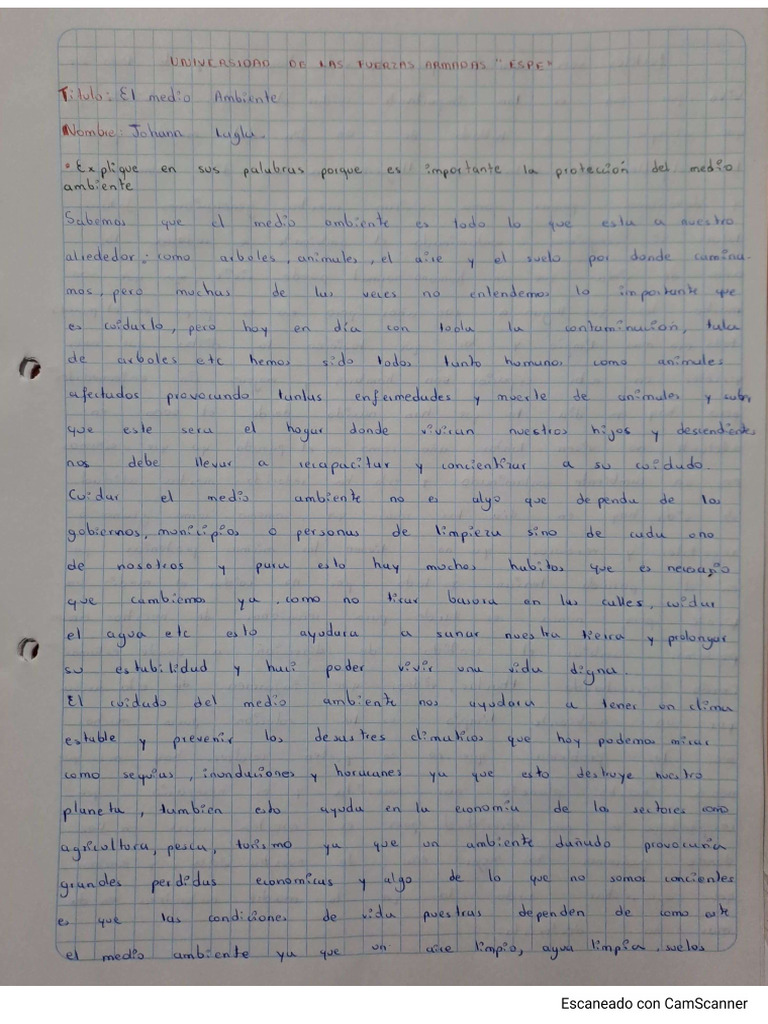 UNIVERSIDAD DE LAS FUERZAS ARMADAS "ESPE"
Titulo: El medio Ambiente
Nombre: Johann Luglu.
• Explique en sus palabras porque es importante la protección del medio
ambiente
Sabemos que el medio ambiente es todo lo que esta a nuestro
alrededor: como arboles, animales, el aire y el suelo por donde camina-
mos, pero muchas de las veces no entendemos lo importante que
es cuidarlo, pero hoy en día con toda la contaminación, tala
de arboles etc hemos sido todos tanto humanos como animales
afectados provocando tantas enfermedades y muerte de animales y saber
que este sera el hogar donde viviran nuestros hijos y descendientes
nos debe llevar a recapacitar y concientizar a su cuidado.
Cuidar el medio ambiente no es algo que dependa de los
gobiernos, municipios o personas de limpieza sino de cada uno
de nosotros y para esto hay muchos habitos que es necesario
que cambiemos ya, como no tirar basura en las calles, cuidar
el agua etc esto ayudara a sanar nuestra tierra y prolongar
su estabilidad y haci poder vivir una vida digna.
El cuidado del medio ambiente nos ayudara a tener un clima
estable y prevenir los desastres climaticos que hoy podemos mirar
como sequias, inundaciones y horucanes ya que esto destruye nuestro
planeta, tambien esto ayuda en la economia de los sectores como
agricultura, pesca, turismo ya que un ambiente dañado provocaria
grandes perdidas economicas y algo de lo que no somos concientes
es que las condiciones de vida nuestras dependen de como este
el medio ambiente ya que un aire limpio, agua limpia, suelos
Escaneado con CamScanner